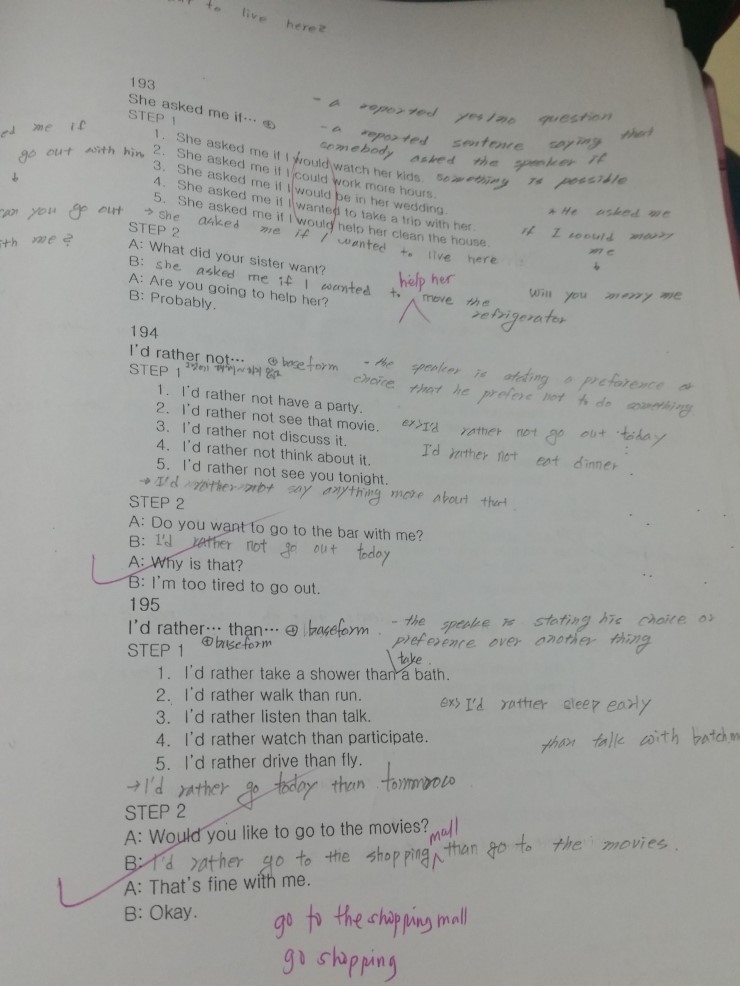 to live here?
193
She asked me if… ⊕
- a reported yes/no question
STEP 1
- a reported sentence saying that
somebody asked the speaker if
something is possible
ed me if
go out with him
↓
can you go out
ith me?
1. She asked me if I would watch her kids.
2. She asked me if I could work more hours.
3. She asked me if I would be in her wedding.
4. She asked me if I wanted to take a trip with her.
5. She asked me if I would help her clean the house.
* He asked me
if I would marry
me
↓
Will you marry me
→ She asked me if I wanted to live here
STEP 2
A: What did your sister want?
B: she asked me if I wanted to help her move the
refrigerator
A: Are you going to help her?
B: Probably.
194
I'd rather not… ⊕ base form
- the speaker is stating a preference or
choice that he prefers not to do something.
STEP 1
1. I'd rather not have a party.
2. I'd rather not see that movie.
3. I'd rather not discuss it.
4. I'd rather not think about it.
5. I'd rather not see you tonight.
ex> I'd rather not go out today
I'd rather not eat dinner.
→ I'd rather not say anything more about that.
STEP 2
A: Do you want to go to the bar with me?
B: I'd rather not go out today
A: Why is that?
B: I'm too tired to go out.
195
I'd rather… than… ⊕ baseform.
⊕ baseform
- the speake is stating his choice or
preference over another thing
STEP 1
take
1. I'd rather take a shower than a bath.
2. I'd rather walk than run.
3. I'd rather listen than talk.
4. I'd rather watch than participate.
5. I'd rather drive than fly.
ex> I'd rather sleep early
than talk with batchm
→ I'd rather go today than tommorow
STEP 2
A: Would you like to go to the movies?
B: I'd rather go to the shopping mall than go to the movies.
A: That's fine with me.
B: Okay.
go to the shopping mall
go shopping